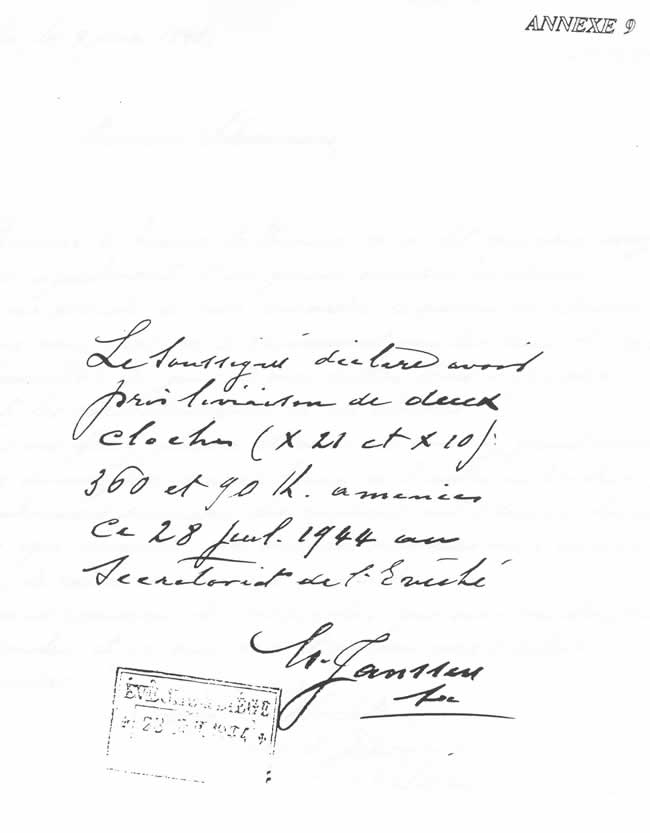 ANNEXE 9
Le soussigné déclare avoir
pris livraison de deux
cloches (X 21 et X 10):
360 et 90 K. amenées
ce 28 juil. 1944 au
Secrétariat de l'Evêché
Janssen
ÉVÊCHÉ DE LIÈGE